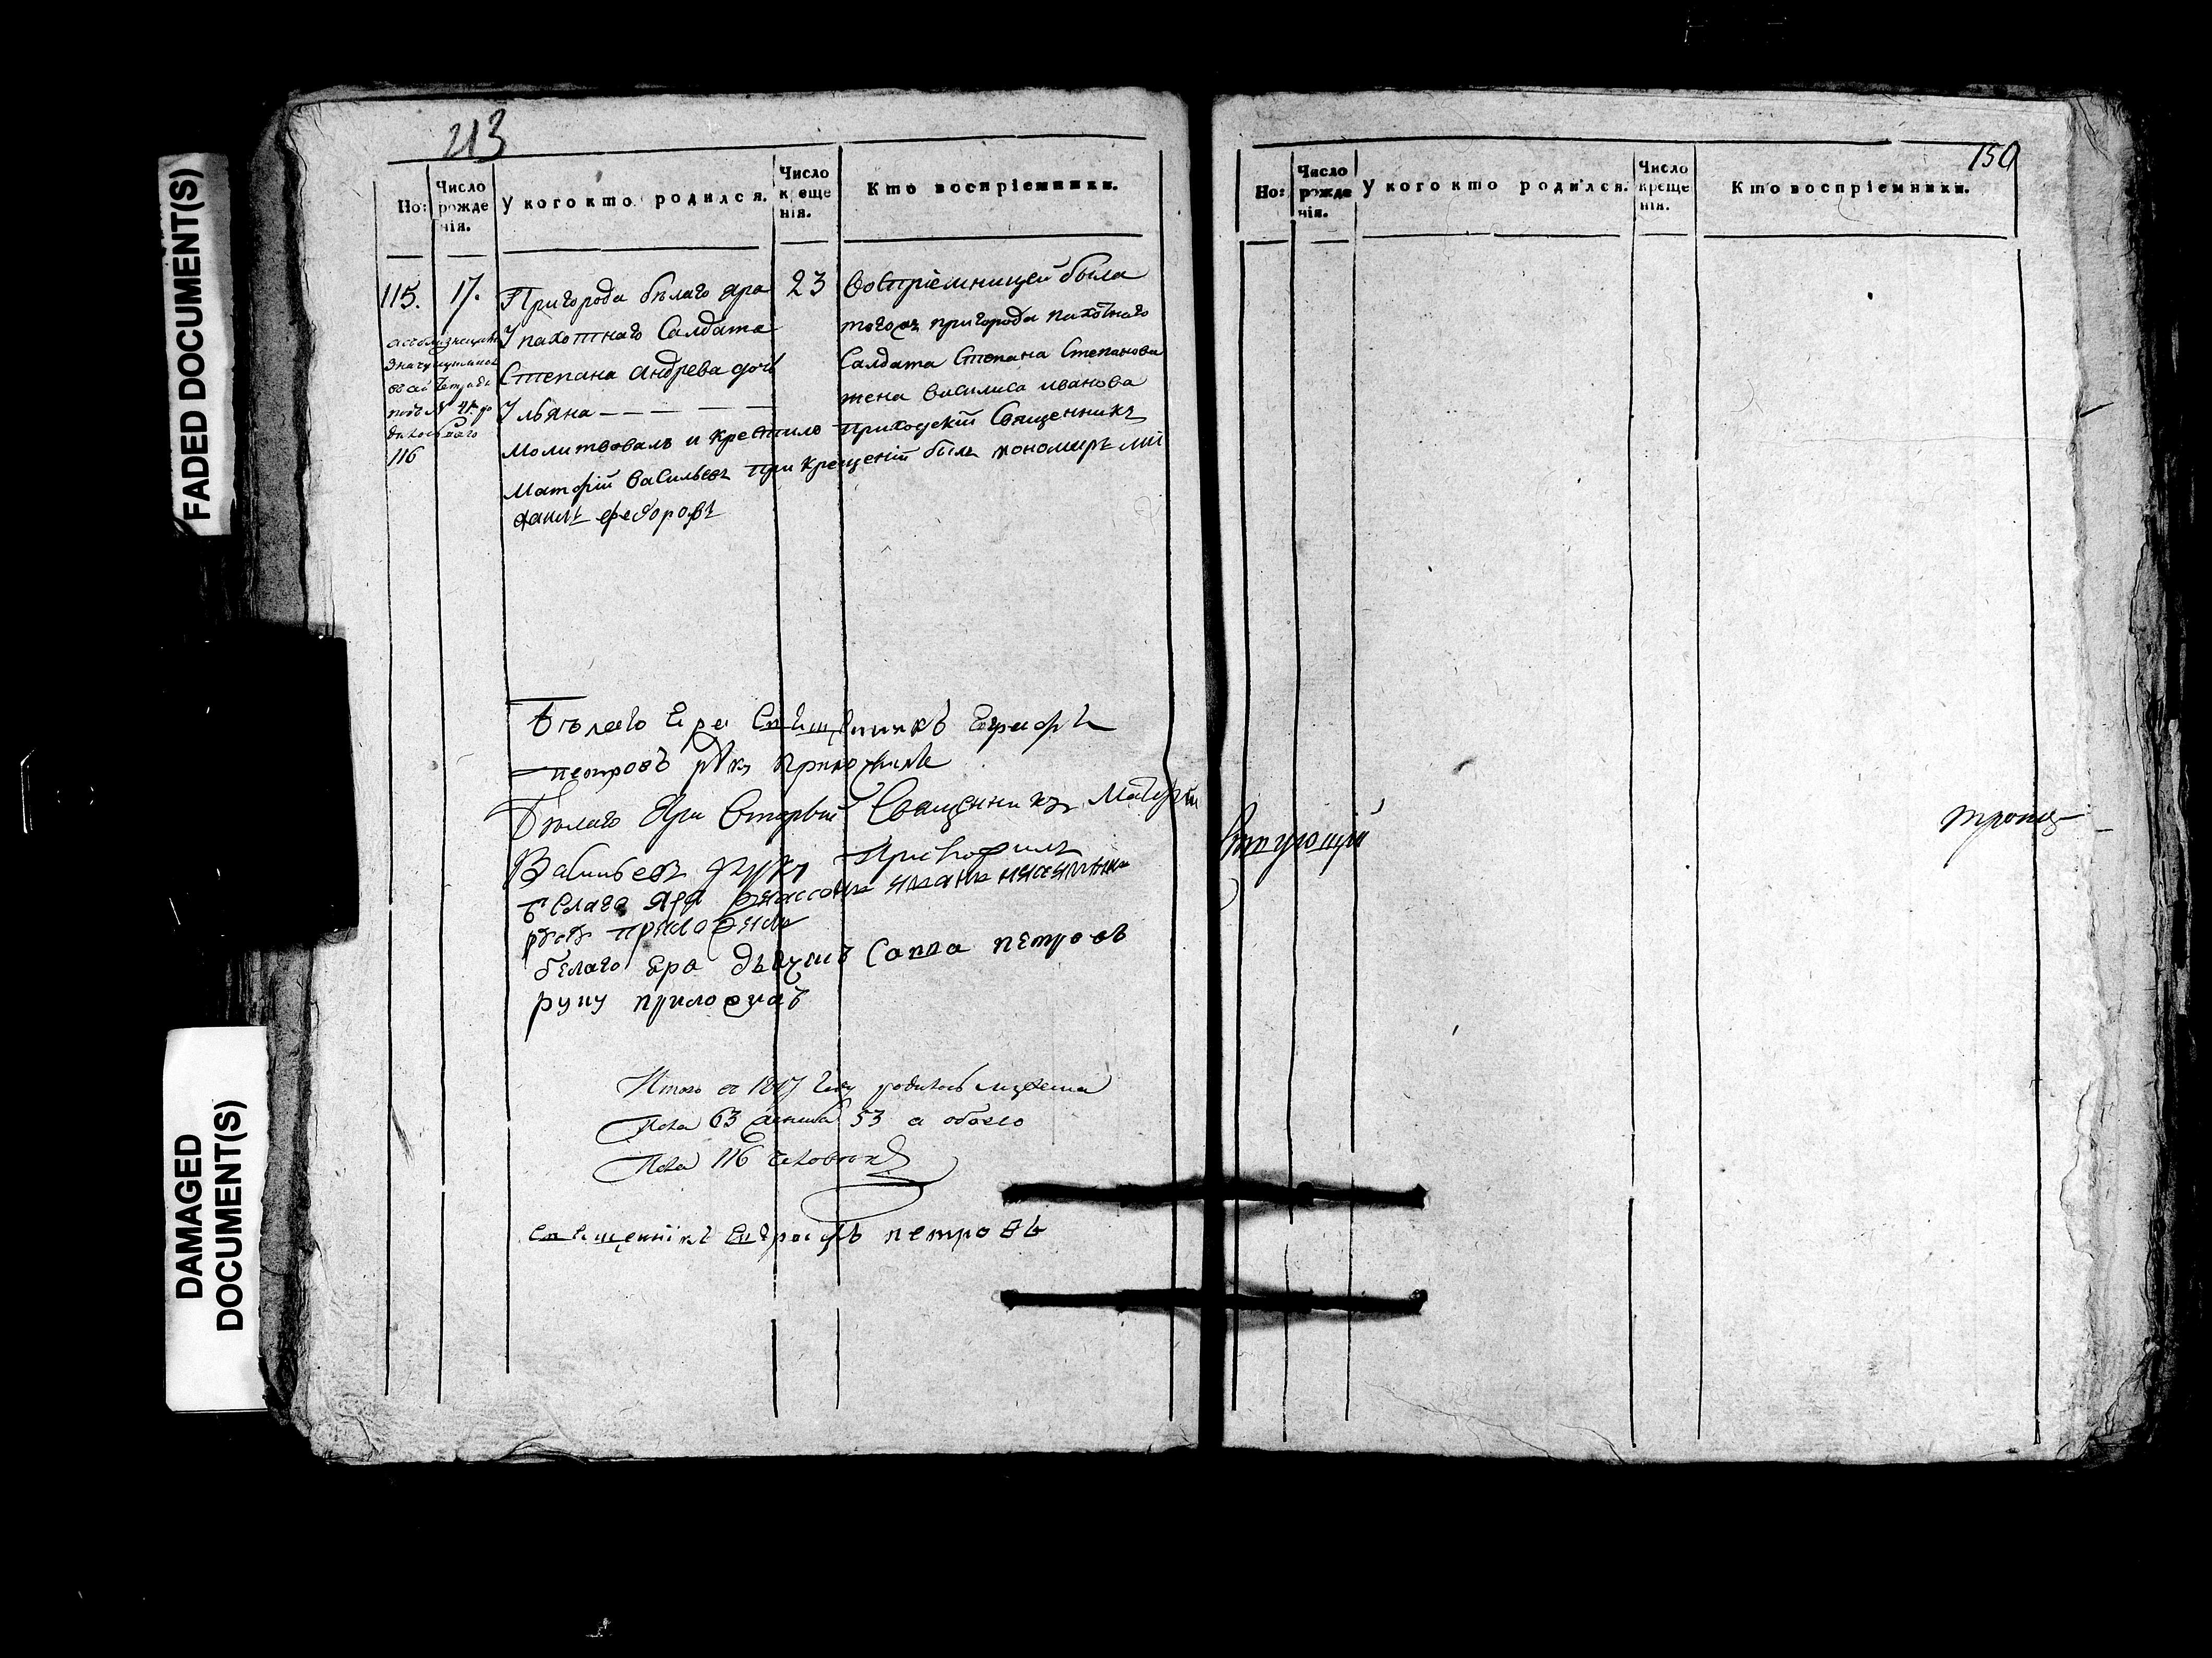 FADED DOCUMENT(S)
DAMAGED
DOCUMENT(S)
213
Но:
Число
рожде
нія.
У кого кто родился.
Число
креще
нія.
Кто воспріемники.
115. 17. Пригорода бѣлаго яра 23
У пахотнаго Салдата
Степана андрева дочь
Ульяна
116
воспріемницей была
тогожъ пригорода пахотнаго
Салдата Степана Степанова
жена василиса иванова
Молитвовалъ и крестилъ приходскій Священникъ
Матфій васильевъ при крещеніи былъ пономарь ми
хаилъ федоровъ
Бѣлаго Яра Священникъ Евграфъ
петровъ руку приложилъ
Бѣлаго Яра вторый Священникъ Матфей
Васильевъ руку Приложилъ
белаго яра
руку приложилъ
белаго Яра дьячокъ Савва петровъ
руку приложилъ
Итого въ 1817 году родилось мужеска
пола 63 женска 53 а обоего
пола 116 человекъ
Священникъ Евграфъ петровъ
150
Но:
Число
рожде
нія.
У кого кто родился.
Число
креще
нія.
Кто воспріемники.